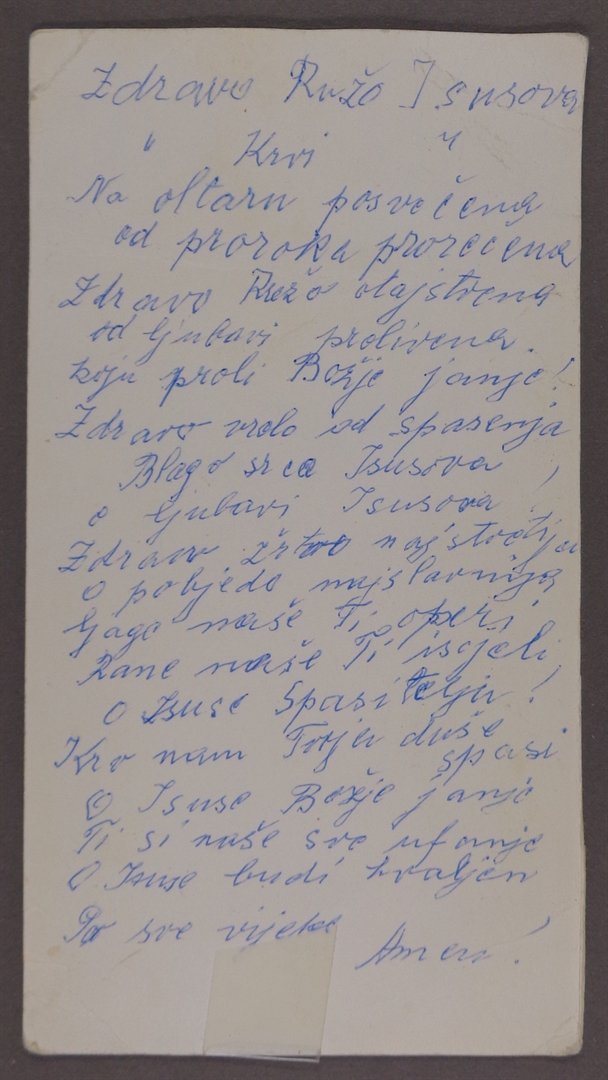 Zdravo Ružo Isusova
" Krvi "
Na oltaru posvećena
od proroka prorećena
Zdravo Ružo otajstvena
od ljubavi prolivena.
koju proli Božje janje!
Zdravo vrelo od spasenja
Blago srca Isusova,
o ljubavi Isusova!
Zdravo žrtvo najsvetija
O pobjedo najslavnija
ljage naše Ti operi
Rane naše Ti iscjeli
O Isuse Spasitelju!
Krv nam Tvoja duše
spasi
O Isuse Božje janje
Ti si naše sve ufanje
O Isuse budi hvaljen
Po sve vijeke
Amen!